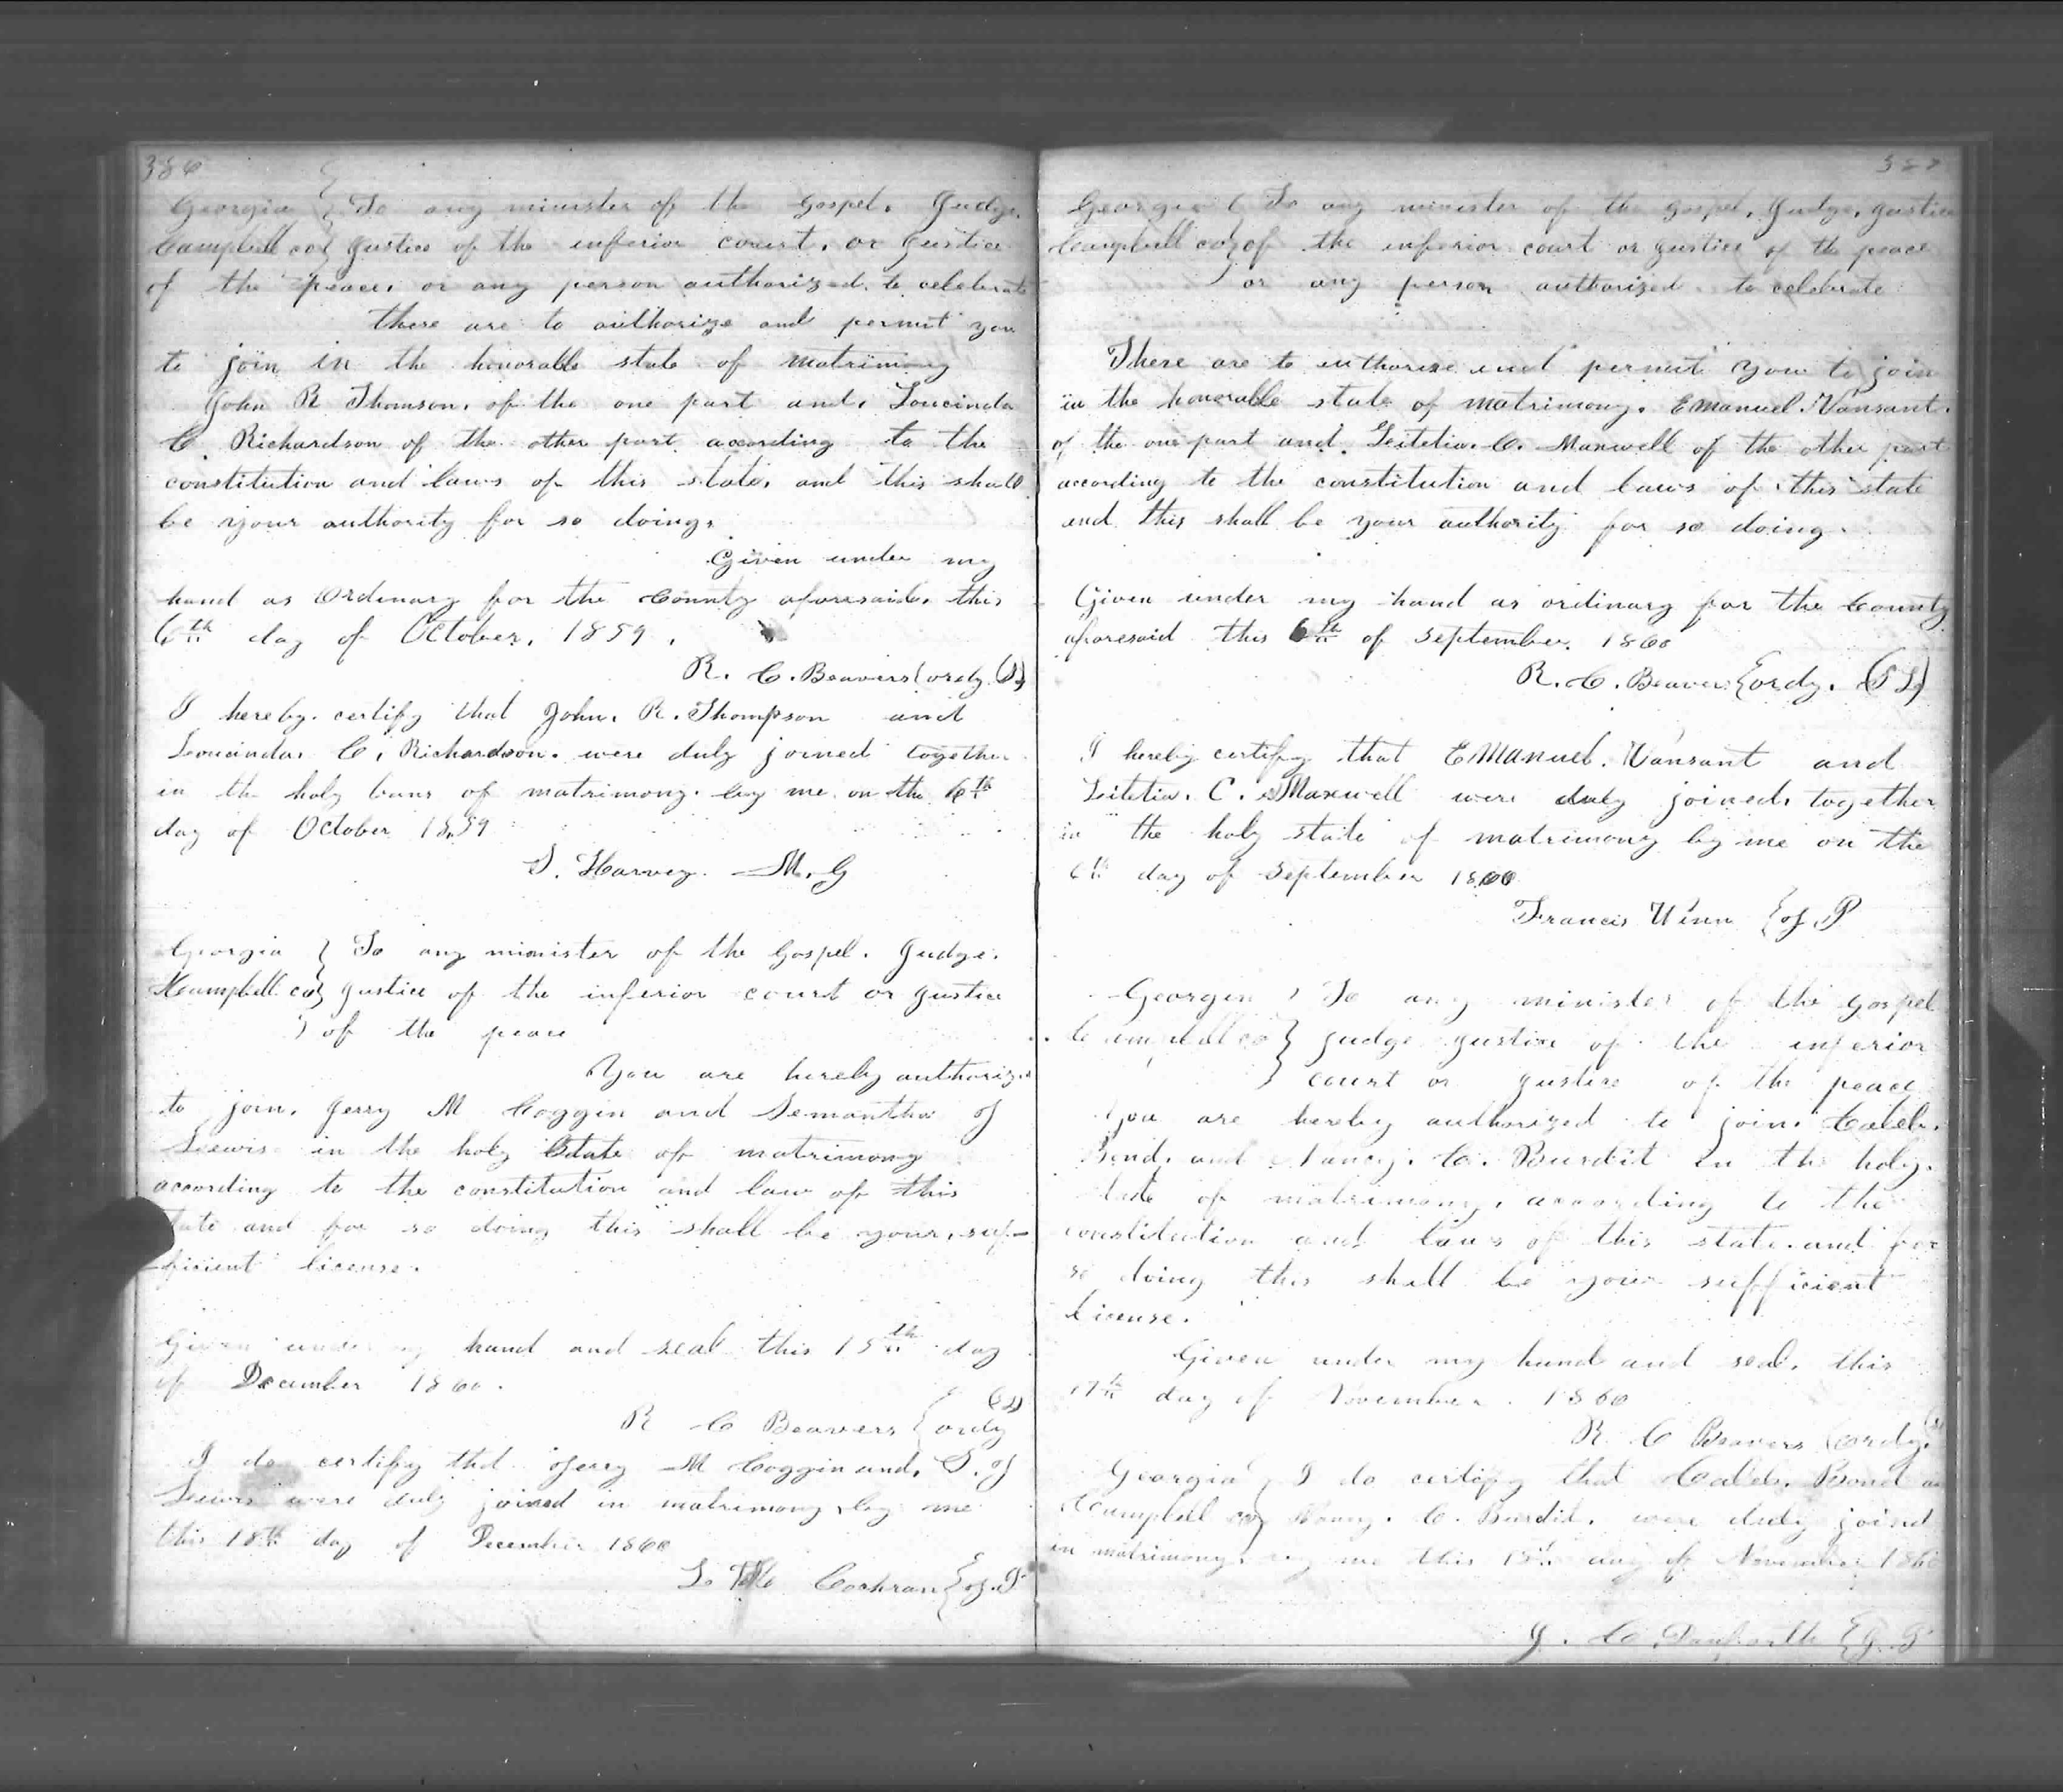 386
Georgia } To any minister of the Gospel, Judge,
Campbell co } Justice of the inferior court, or Justice
of the peace, or any person authorized to celebrate
These are to authorize and permit you
to join in the honorable state of matrimony
John R Thomson, of the one part and, Loucinda
C. Richardson of the other part according to the
constitution and laws of this state, and this shall
be your authority for so doing,
Given under my
hand as Ordinary for the County aforesaid, this
6th day of October, 1859,
R. C. Beavers { ordy.
I hereby certify that John. R. Thompson and
Loucinda, C, Richardson. were duly joined together
in the holy bans of matrimony. by me on the 6th
day of October 1859
S. Harvey. M. G
Georgia } To any minister of the Gospel. Judge.
Campbell co } Justice of the inferior court or Justice
} of the peace
You are hereby authorize
to join, Jerry M Coggin and Semantha J
Lewis in the holy State of matrimony
according to the constitution and law of this
state and for so doing this shall be your, suf-
ficient license.
Given under my hand and seal this 15th day
of December 1860.
R C Beavers { ordy
I do certify that Jerry M Coggin and, S. J
Lewis were duly joined in matrimony by me
this 18th day of December 1860
Cochran { J. P
387
Georgia { To any minister of the gospel, Judge, Justice
Campbell co } of the inferior court or Justice of the peace
} or any person authorized to celebrate
These are to authorize and permit you to join
in the honorable state of matrimony. Emanuel Vansant.
of the one part and. Letitia. C. Maxwell of the other part
according to the constitution and laws of this state
and this shall be your authority for so doing.
Given under my hand as ordinary for the County
aforesaid this 6th of September. 1860
R. C. Beavers { ordy. (LS)
I hereby certify that Emanuel. Vansant and
Letitia. C. Maxwell were duly joined, together
in the holy state of matrimony by me on the
6th day of September 1860
Francis Winn { J. P
Georgia } To any minister of the Gospel
Campbell co } Judge Justice of the inferior
} court or Justice of the peace
You are hereby authorized to join. Caleb.
Bond. and Nancy. C. Burdit in the holy.
state of matrimony, according to the
constitution and laws of this state. and for
so doing this shall be your sufficient
license.
Given under my hand and seal. this
17th day of November. 1860
R. C Beavers { ordy.
Georgia } I do certify that Caleb. Bond an
Campbell co } Nancy. C. Burdit. were duly joined
in matrimony, by me this 18th day of November 1860
J. C. Danforth { J. P